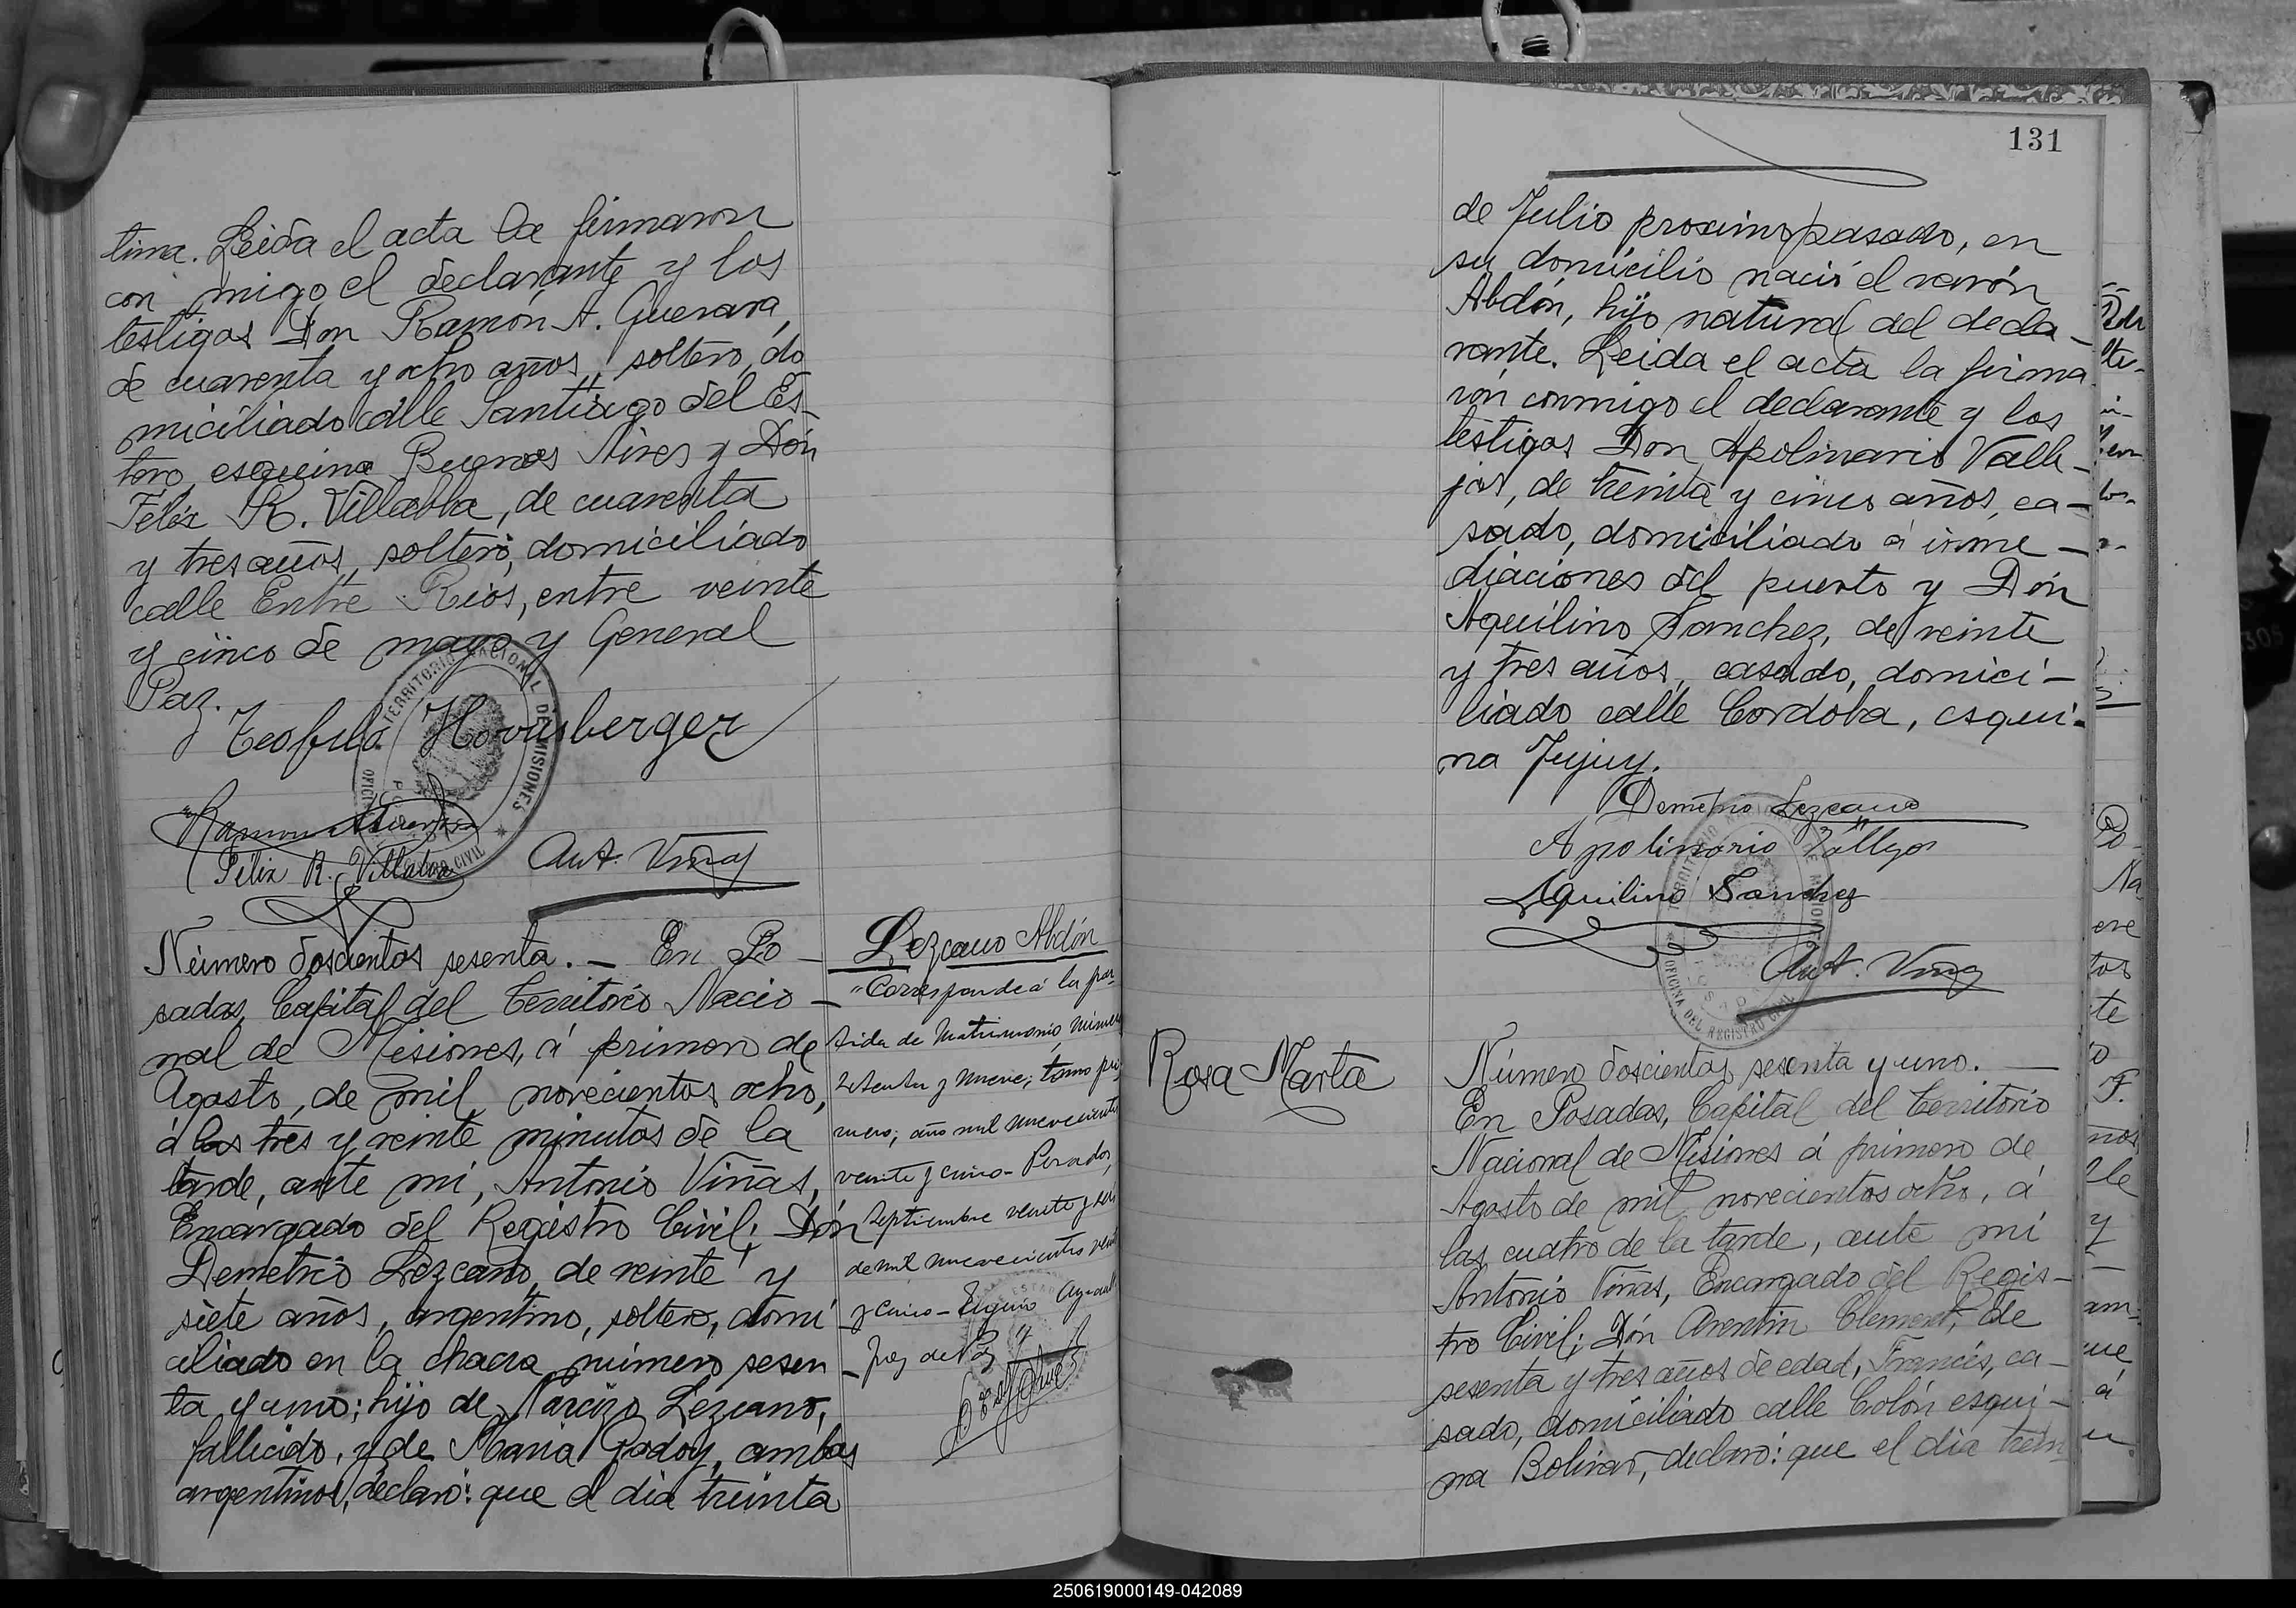 tima. Leida el acta la firmaron
con migo el declarante y los
testigos Don Ramón A. Guevara,
de cuarenta y ocho años, soltero, do
miciliado calle Santiago del Es-
tero esquina Buenos Aires y Dón
Felix R. Villalba, de cuarenta
y tres años, soltero, domiciliado
calle Entre Rios, entre veinte
y cinco de mayo y General
Paz.
Teofilo Hornsberger
Ramon A Guevara
Felix R. Villalba
Ant. Viñas
TERRITORIO NACIONAL DE MISIONES
Número doscientos sesenta. — En Po-
sadas, Capital del Territorio Nacio-
nal de Misiones, á primero de
Agosto, de mil novecientos ocho,
á las tres y veinte minutos de la
tarde, ante mi, Antonio Viñas,
Encargado del Registro Civil; Dón
Demetrio Lezcano, de veinte y
siete años, argentino, soltero, domi-
ciliado en la chacra número sesen-
ta y uno; hijo de Narcizo Lezcano,
fallecido, y de Maria Godoy, ambos
argentinos, declaró: que el dia treinta
Lezcano Abdón
"Corresponde á la par-
tida de Matrimonio, número
setenta y nueve; tomo pri-
mero; año mil novecientos
veinte y cinco - Posadas,
Septiembre veinte y seis
de mil novecientos veinte
y cinco -
Juez de Paz"
131
de Julio proximo pasado, en
su domicilio nació el varón
Abdón, hijo natural del decla-
rante. Leida el acta la firma
rón conmigo el declarante y los
testigos Don Apolinario Valle-
jos, de treinta y cinco años, ca-
sado, domiciliado á inme-
diaciones del puerto y Dón
Aquilino Sanchez, de veinte
y tres años, casado, domici-
liado calle Cordoba, esqui-
na Jujuy.
Demetrio Lezcano
Apolinario Vallejos
Aquilino Sanchez
Ant. Viñas
OFICINA DEL REGISTRO CIVIL
Rosa Marta
Número doscientos sesenta y uno. —
En Posadas, Capital del Territorio
Nacional de Misiones á primero de
Agosto de mil novecientos ocho, á
las cuatro de la tarde, ante mi
Antonio Viñas, Encargado del Regis-
tro Civil; Dón Aventin Clement, de
sesenta y tres años de edad, Francés, ca-
sado, domiciliado calle Colón esqui-
na Bolivar, declaró: que el dia trein
250619000149-042089